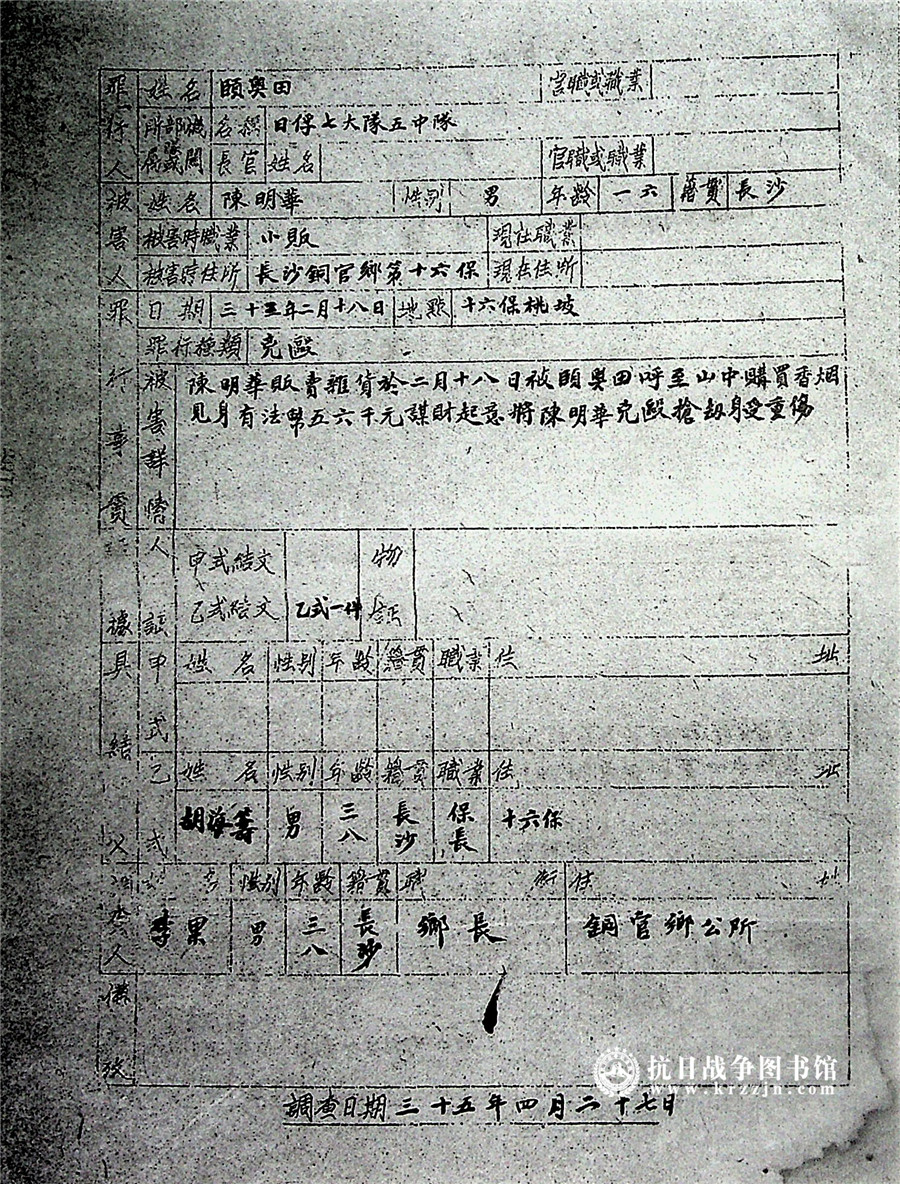 罪行人 姓名 頤奧田 官職或職業
所屬部隊或機關 名稱 日俘七大隊五中隊
長官 姓名 官職或職業
被害人 姓名 陳明華 性別 男 年齡 一六 籍貫 長沙
被害時職業 小販 現在職業
被害時住所 長沙銅官鄉第十六保 現在住所
罪行事實 日期 三十五年二月十八日 地點 十六保桃坡
罪行種類 兇毆
被害詳情 陳明華販賣雜貨於二月十八日被頤奧田呼至山中購買香烟
見身有法幣五六千元謀財起意將陳明華兇毆搶劫身受重傷
證據 人證 甲式結文 物証
乙式結文 乙式一件
具結 甲式 姓名 性別 年齡 籍貫 職業 住址
乙式 姓名 性別 年齡 籍貫 職業 住址
胡海籌 男 三八 長沙 保長 十六保
調查人 姓名 性別 年齡 籍貫 職銜 住址
李果 男 三八 長沙 鄉長 銅官鄉公所
備攷
調查日期三十五年四月二十七日
抗日战争图书馆
www.krzzjn.com